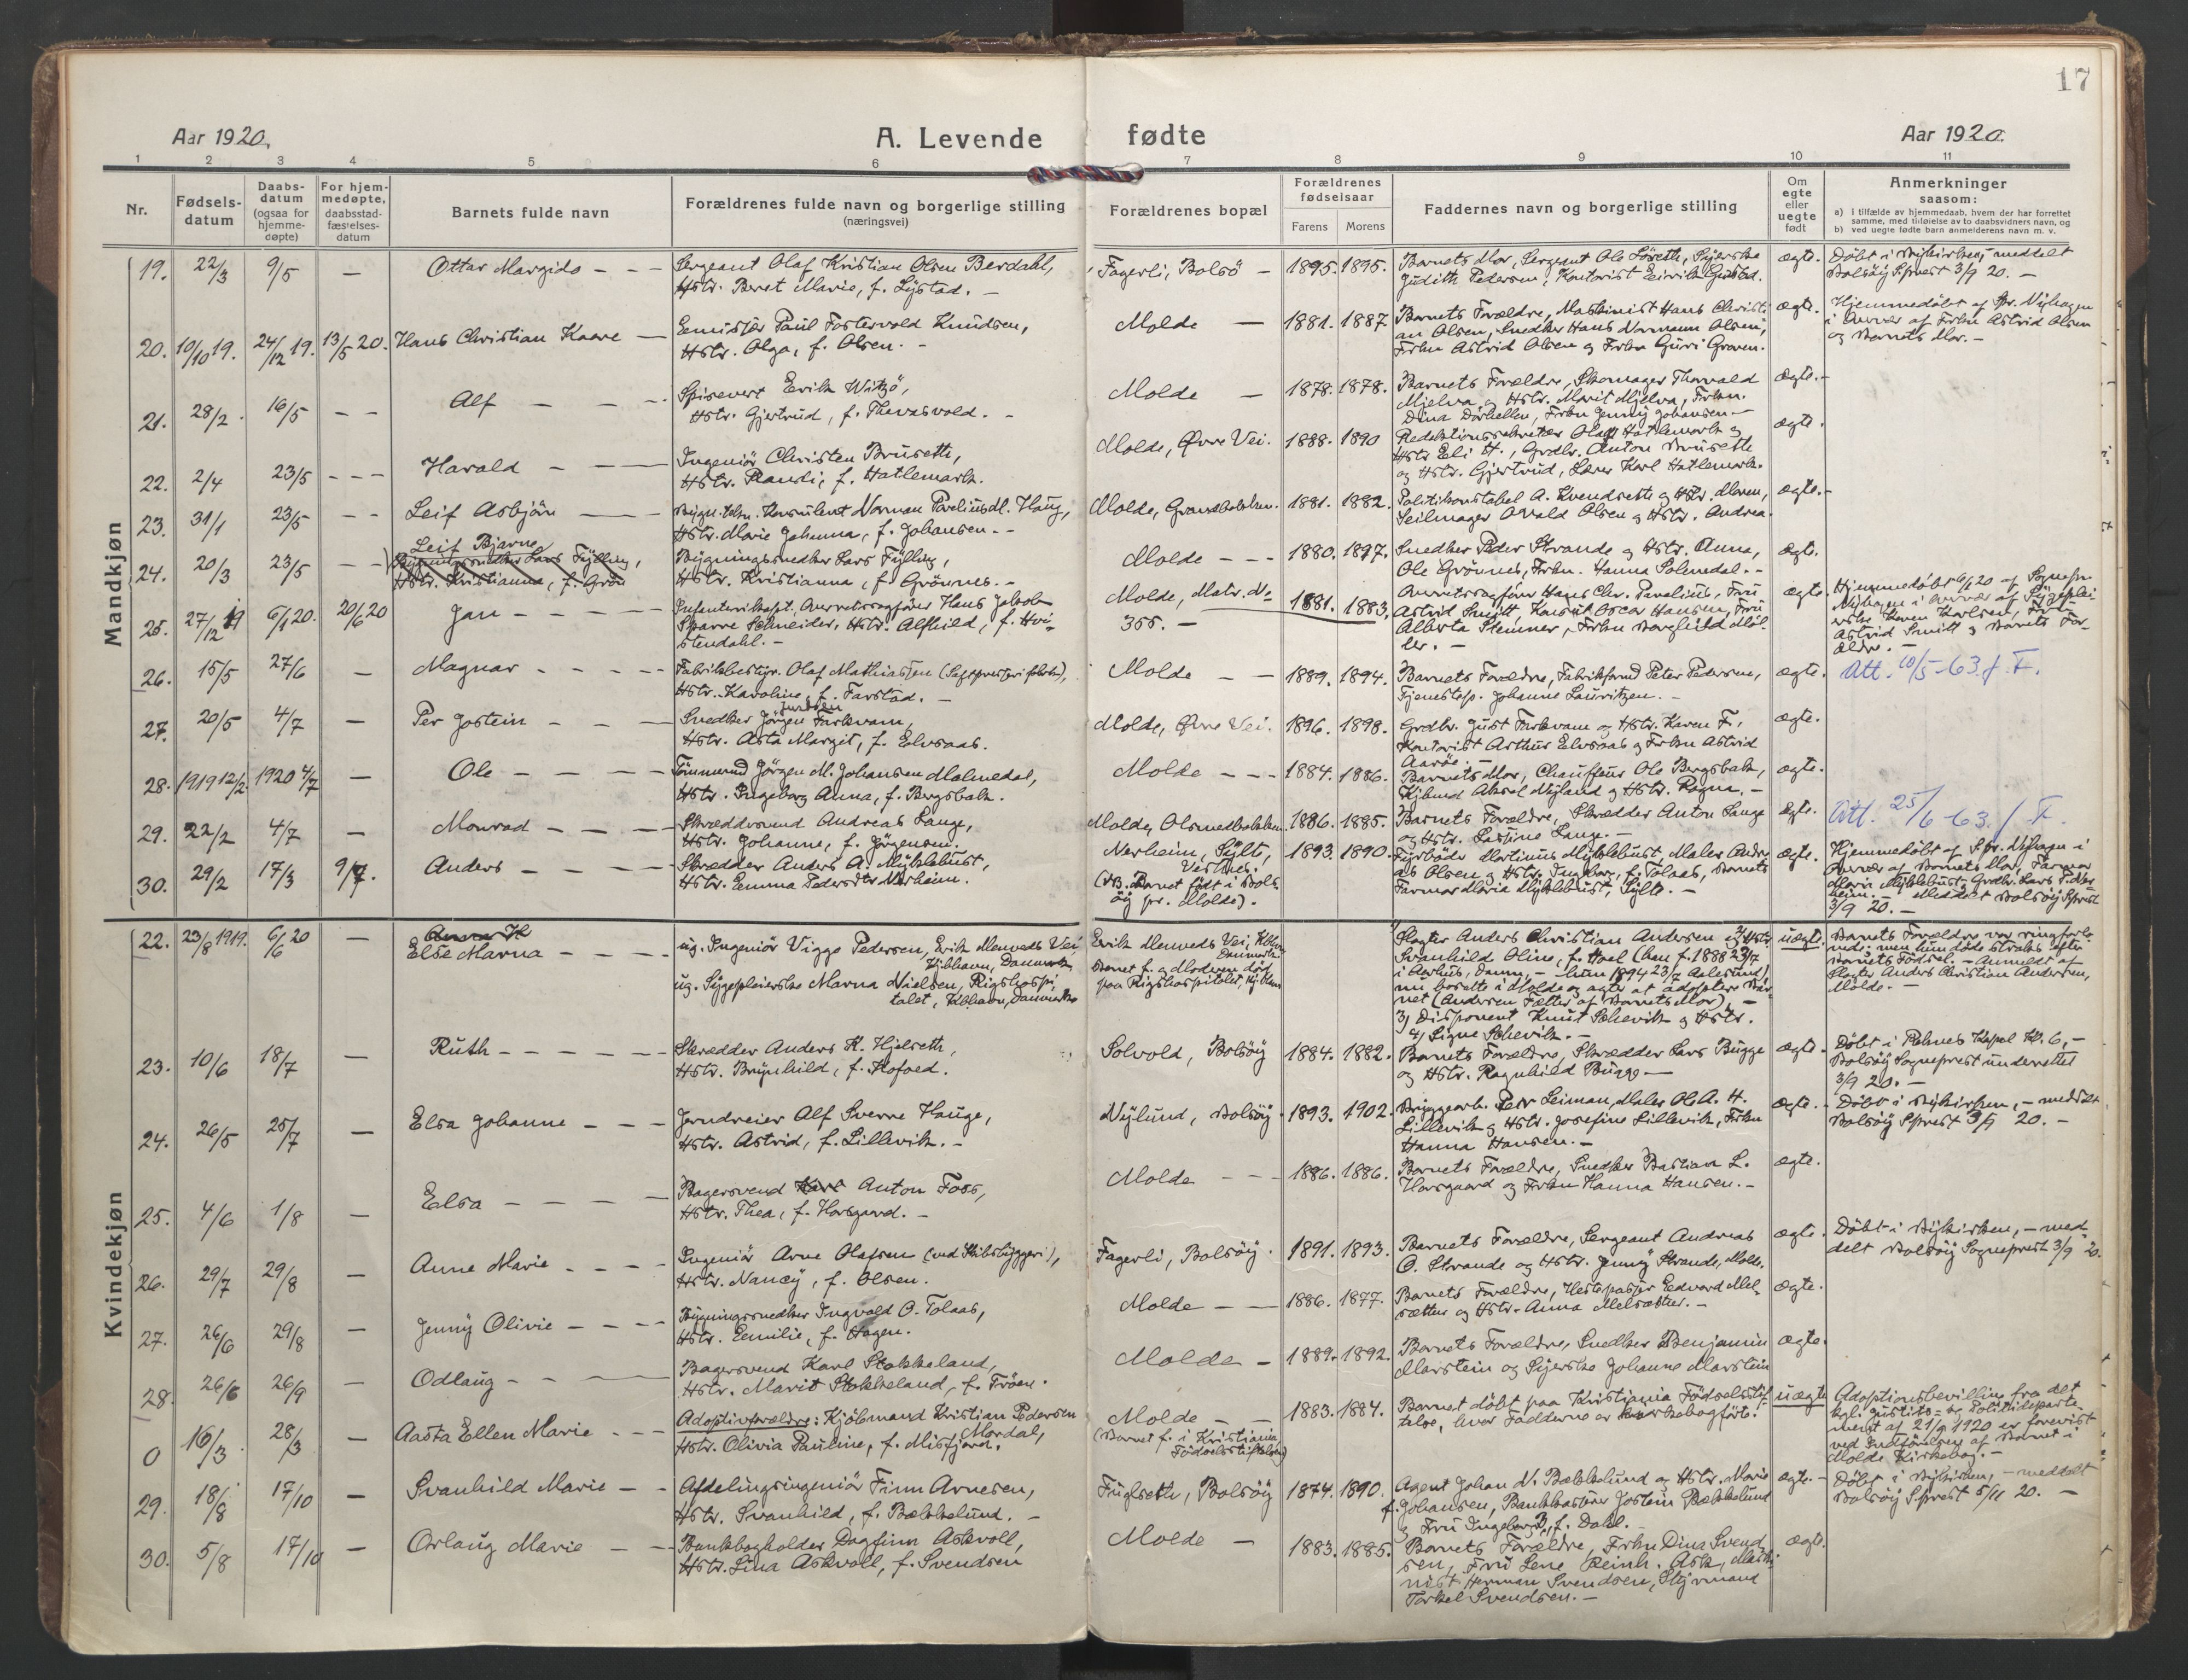 17
Aar 1920.
A. Levende fødte
Aar 1920.
1 2 3 4 5 6 7 8 9 10 11
Nr.
Fødsels-
datum
Daabs-
datum
(ogsaa for
hjemme-
døpte)
For hjem-
medøpte,
daabsstad-
fæstelses-
datum
Barnets fulde navn
Forældrenes fulde navn og borgerlige stilling
(næringsvei)
Forældrenes bopæl
Forældrenes
fødselsaar
Farens Morens
Faddernes navn og borgerlige stilling
Om
egte
eller
uegte
født
Anmerkninger
saasom:
a) i tilfælde av hjemmedaab, hvem der har forrettet
samme, med tilføielse av to daabsvidners navn, og
b) ved uegte fødte barn anmelderens navn m. v.
Mandkjøn
19. 22/3 9/5 — Ottar Margido - - -
Sergeant Olaf Kristian Olsen Berdahl,
Hstr. Beret Marie, f. Lystad. -
Fagerli, Bolsö - 1895. 1895.
Barnets Mor, Sergeant Ole Löseth, Syerske
Judith Pedersen, Kontorist Eirik Gustad.
ægte.
Döbt i Nykirken, meddelt
Bolsöy Sprest 3/9 20. -
20. 10/10 19. 24/12 19. 13/5 20. Hans Christian Kaare -
Emissær Paul Fostervold Knudsen,
Hstr. Olga, f. Olsen. -
Molde - 1881. 1887.
Barnets Forældre, Maskinist Hans Christi
an Olsen, Snedker Hans Normann Olsen,
Frkn Astrid Olsen og Frkn Guri Graven.
ægte.
Hjemmedöbt af Spr. Nyhagen
i Nærvær af Frkn Astrid Olsen
og Barnets Mor. -
21. 28/2. 16/5 - - Alf - - -
Spisevert Eerik Witzö,
Hstr. Gjertrud, f. Tharasvold. -
Molde - 1878. 1878.
Barnets Forældre, Skomager Thorvald
Mjelva og Hstr. Marit Mjelva, Frkn.
Dina Dörhellen, Frkn Jenny Johansen -
ægte. -
22. 2/4 23/5 - - - Harald - - -
Ingeniör Christen Bruseth,
Hstr. Randi, f. Hatlemark.
Molde, Övre Vei. 1888. 1890
Redaktionssekretær Olaf Hatlemark og
Hstr Eli H., Grdbr. Anton Bruseth
og Hstr. Gjertrud, Lærer Karl Hatlemark.
ægte.
23. 31/1 23/5 - - Leif Asbjörn - -
Bygn. tekn. Konsulent Norman Paveliusdl. Haug,
Hstr. Marie Johanna, f. Johansen. - -
Molde, Grandbakken. 1881. 1882.
Politikonstabel A. Kvendseth og Hstr. Maren,
Seilmager Osvald Olsen og Hstr. Andrea.
ægte. -
24. 20/3 23/5 - - Leif Bjarne
Bygningssnedker Lars Fylling,
Hstr. Kristianna, f. Grön
Bygningssnedker Lars Fylling,
Hstr. Kristianna, f Grönnes. -
Molde - - - 1880. 1897.
Snedker Peder Strande og Hstr. Anna,
Ole Grönnes, Frkn. Hanna Solemdal. -
ægte.
25. 27/12 19 6/1 20. 20/6 20 Jan - - - -
Infanterikapt, Overretssagförer Hans Jakob
Sparre Schneider, Hstr. Alfhild, f. Hvi-
stendahl. -
Molde, Matr. No
355. -
1881. 1883.
Overretssagförer Hans Chr. Pavelius, Fru
Astrid Smitt, Konsul Oscar Hansen, Fru
Alberta Stenner, Frkn Borghild Möl-
ler. -
ægte.
Hjemmedöbt 6/1 20 af Sognepr.
Nyhagen i Nærvær af Syyeplei-
erske Karen Karlsen, Frk.
Astrid Smitt og Barnets For-
ældre. -
26. 15/5 27/6 — Magnar - - - -
Fabrikbestyr. Olaf Mathiassen (Saftpresserifabrik),
Hstr. Karoline, f. Farstad. -
Molde - - 1889. 1894.
Barnets Forældre, Fabrikfmd Peter Pedersen,
Tjenestep. Johanne Lauritzen. -
ægte.
Att. 10/5-63. f. F.
27. 20/5 4/7 — Per Jostein - - -
Snedker Jörgen Farkvam,
Hstr. Asta Margit, f. Elvsaas.
Molde, Övre Vei. 1896. 1898.
Grdbr. Just Farkvam og Hstr. Karen F.,
Kontorist Arthur Elvsaas og Frkn Astrid
Aaröe. -
ægte.
28. 1919 12/2. 1920 4/7 — Ole - - - -
Tömmermd Jörgen M. Johansen Malmedal,
Hstr. Ingeborg Anna, f. Bergsbak.
Molde - - - 1884. 1886.
Barnets Mor, Chauffeur Ole Bergsbak,
Kjöbmd Aksel Nyland og Hstr. Ragna. -
ægte.
29. 22/2 4/7 — Monrad - - - -
Skræddersvend Andreas Lange,
Hstr. Johanne, f. Jörgensen.
Molde, Olsmedbakken. 1886. 1885.
Barnets Forældre, Skrædder Anton Lange
og Hstr. Lassine Lange. -
ægte.
Att. 25/6-63. f F.
30. 29/2 17/3 9/7. Anders - - - -
Skredder Anders A. Myklebust,
Hstr. Emma Pedersdtr Nerheim.
Nerheim, Sylte,
Vestnes.
(NB. Barnet födt i Bols
öy pr. Molde).
1893. 1890.
Fyrböder Martinus Myklebust, Maler Andre
as Olsen og Hstr. Ingeborg, f. Tolaas, Barnets
Farmor Maria Myklebust, Sylte. -
ægte.
Hjemmedöbt af Spr. Nyhagen i
Nærvær af Barnets Mor, Farmor
Marie Myklebust, Grdbr. Lars P. Ner-
heim. - Meddelt Bolsöy Sprest
3/9 20. -
Kvindekjøn
22. 23/8 1919. 6/6 20 — Else Marna - - - -
ug. Ingeniör Viggo Pedersen, Erik Menveds Vei,
Kjöbhavn, Danmark,
ug. Sygepleierske Marna Nielsen, Rigshospi
talet, Kbhavn, Danmark
Erik Menveds Vei, Kbhvn
Danmark.
Barnet f. og Moderen död
paa Rigshospitalet, Kjbhavn
Slagter Anders Christian Andersen og Hstr
Svanhild Oline, f. Hoel (han f. 1888 23/7
i Aarhus, Danm, - hun 1894 23/7 Aalesund)
nu bosatte i Molde og agter at adoptere Bar-
net (Andersen Fætter af Barnets Mor), -
3, Disponent Knut Schevik og Hstr.
4, Signe Schevik. -
uægte.
Barnets Forældre var ringforlo-
vede; men hun döde straks efter
Barnets Födsel. - Anmeldt af
Slagter Anders Christian Andersen,
Molde. -
23. 10/6 18/7 — Ruth - - - - -
Skrædder Anders K. Hjelseth,
Hstr. Brynhild, f. Kofoed.
Solvold, Bolsöy 1884. 1882.
Barnets Forældre, Skrædder Lars Bugge
og Hstr. Ragnhild Bugge -
ægte.
Döbt i Röknes Kapel Kl. 6, -
Bolsöy Sogneprest underrettet
3/9 20. -
24. 26/5 25/7 — Elsa Johanne - - -
Jerndreier Alf Sverre Hauge,
Hstr. Astrid, f. Lillevik. -
Nylund, Bolsöy. 1893. 1902.
Bryggearb. Peer Leiman, Maler Ole A. H.
Lillevik og Hstr. Josefine Lillevik, Frkn
Hanna Hansen. -
ægte. -
Döbt i Nykirken, - meddelt
Bolsöy Sprest 3/9 20. -
25. 4/6 1/8 — Elsa - - - -
Bagersvend Anton Foss,
Hstr. Thea, f. Horsgaard. -
Molde - - - 1886. 1886.
Barnets Forældre, Snedker Bastian L.
Horsgaard og Frkn Hanna Hansen. -
ægte.
26. 29/7 29/8 — Anne Marie - - - -
Ingeniör Arne Olafsen (ved Skibsbyggeri),
Hstr. Nancy, f. Olsen.
Fagerli, Bolsöy. 1891. 1893.
Barnets Forældre, Sergeant Andreas
O. Strande og Hstr. Jenny Strande, Molde.
ægte.
Döbt i Nykirken, - med
delt Bolsöy Sogneprest 3/9 20.
27. 26/6 29/8 — Jenny Olivie - - - -
Bygningssnedker Ingvald O. Tolaas,
Hstr. Eemilie, f. Hagen.
Molde - - 1886. 1877.
Barnets Forældre, Hestepasser Eedvard Mel
sætter og Hstr. Anna Melsætter. -
ægte.
28. 26/6 26/9 — Odlaug - - -
Bagersvend Karl Stokkeland,
Hstr. Marit Stokkeland, f. Tröen.
Molde - 1889. 1892.
Barnets Forældre, Snedker Benjamin
Marstein og Syerske Johanne Marstein
ægte.
0 16/3. 28/3 — Aasta Ellen Marie - - -
Adoptivforældre: Kjöbmand Kristian Pedersen
Mordal,
Hstr. Olivia Pauline, f. Misfjord.
Molde - -
(Barnet f. i Kristiania
Födselsstiftelse)
1883. 1884.
Barnet döbt paa Kristiania Födselsstif
telse, hvor Fadderne er kirkebogförte.
uægte
Adoptionsbevilling fra det
kgl. Justits- og Politideparte-
ment af 21/9 1920 er forevist
ved Indförelsen af Barnet i
Molde Kirkebog. -
29. 18/8 17/10 — Svanhild Marie - -
Afdelingsingeniör Finn Arnesen,
Hstr. Svanhild, f. Bækkelund. -
Fuglseth, Bolsöy 1874. 1890.
Agent Johan N. Bækkelund og Hstr. Marie
f. Johansen, Bankkasserer Jostein Bækkelund
og Fru Ingeborg B, f. Dahl. -
ægte. -
Döbt i Nykirken, - meddelt
Bolsöy Sprest 5/11 20. -
30. 5/8 17/10 — Orlaug Marie - -
Bankbogholder Dagfinn Askvoll,
Hstr. Lina Askvoll, f. Svendsen
Molde - 1883. 1885.
Barnets Forældre, Frkn Dina Svend
sen, Fru Lene Reinh. Ask, Maski
nist Herman Svendsen, Styrmand
Torkel Svendsen. -
ægte.